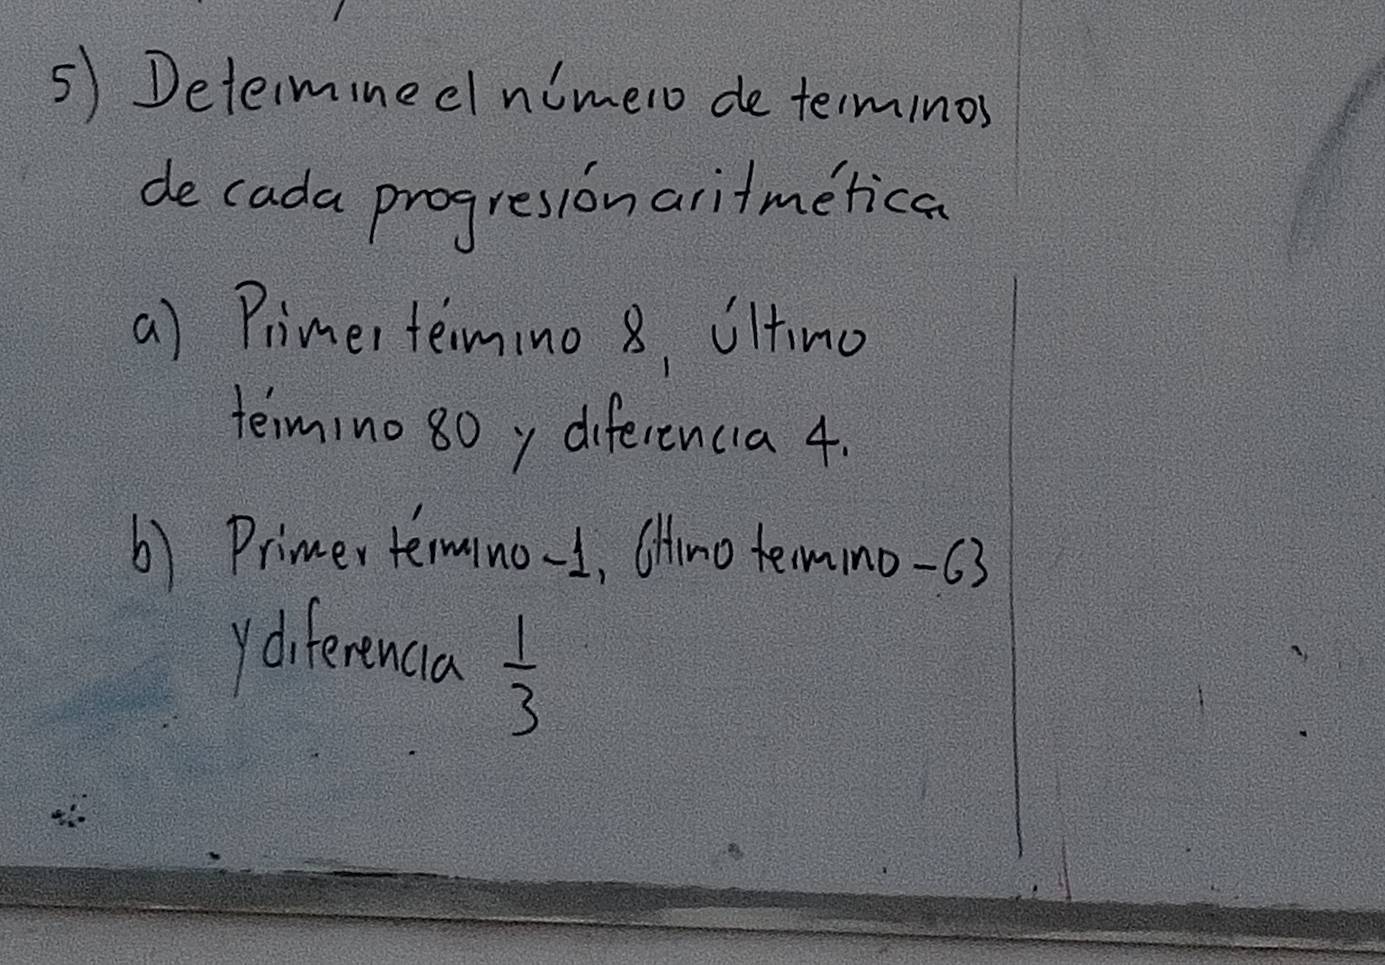 5) Determine el número de terminos
de cada progresión aritmética
a) Primer término 8, último
término 80 y diferencia 4.
b) Primer término -1, último termino -63
y diferencia 1/3